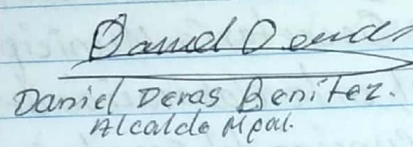 Daniel Deras
Daniel Deras Benítez.
Alcalde Mpal.